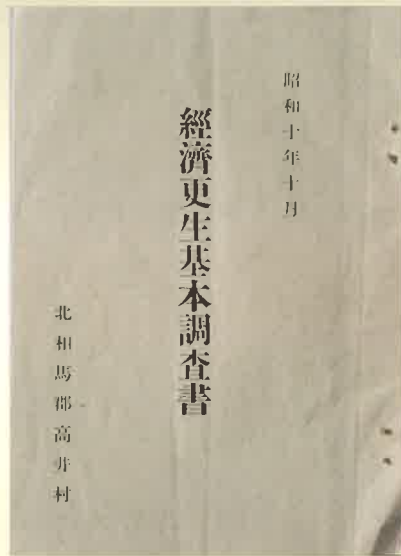 昭和十年十月
經濟更生基本調査書
北相馬郡高井村